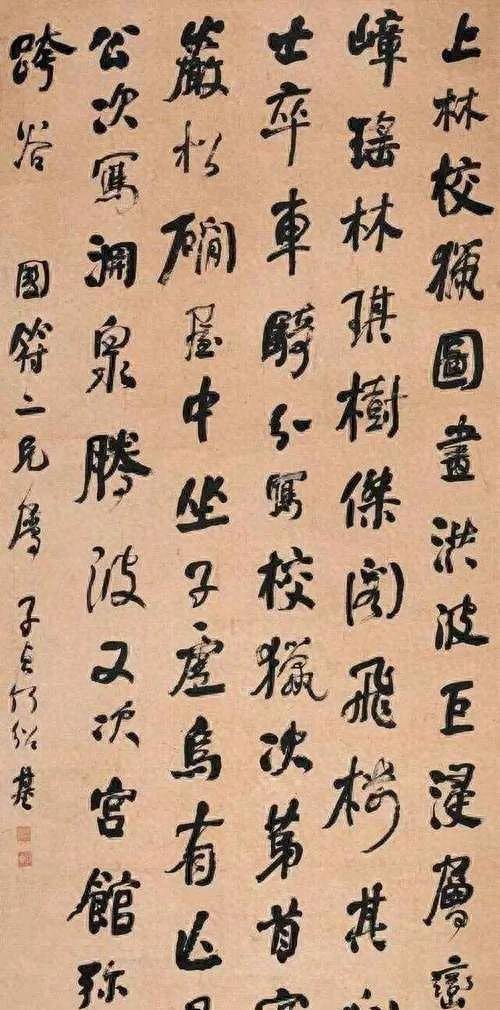 上林校猎圖畫洪波巨浸層巒
嶂瑤林琪樹傑閣飛樓其
士卒車騎分寫校獵次第首
嚴松磵屋中坐子虛烏有亡
公次寫洞泉騰波又次宮館弥
跨谷 國符二兄屬 子貞何紹基